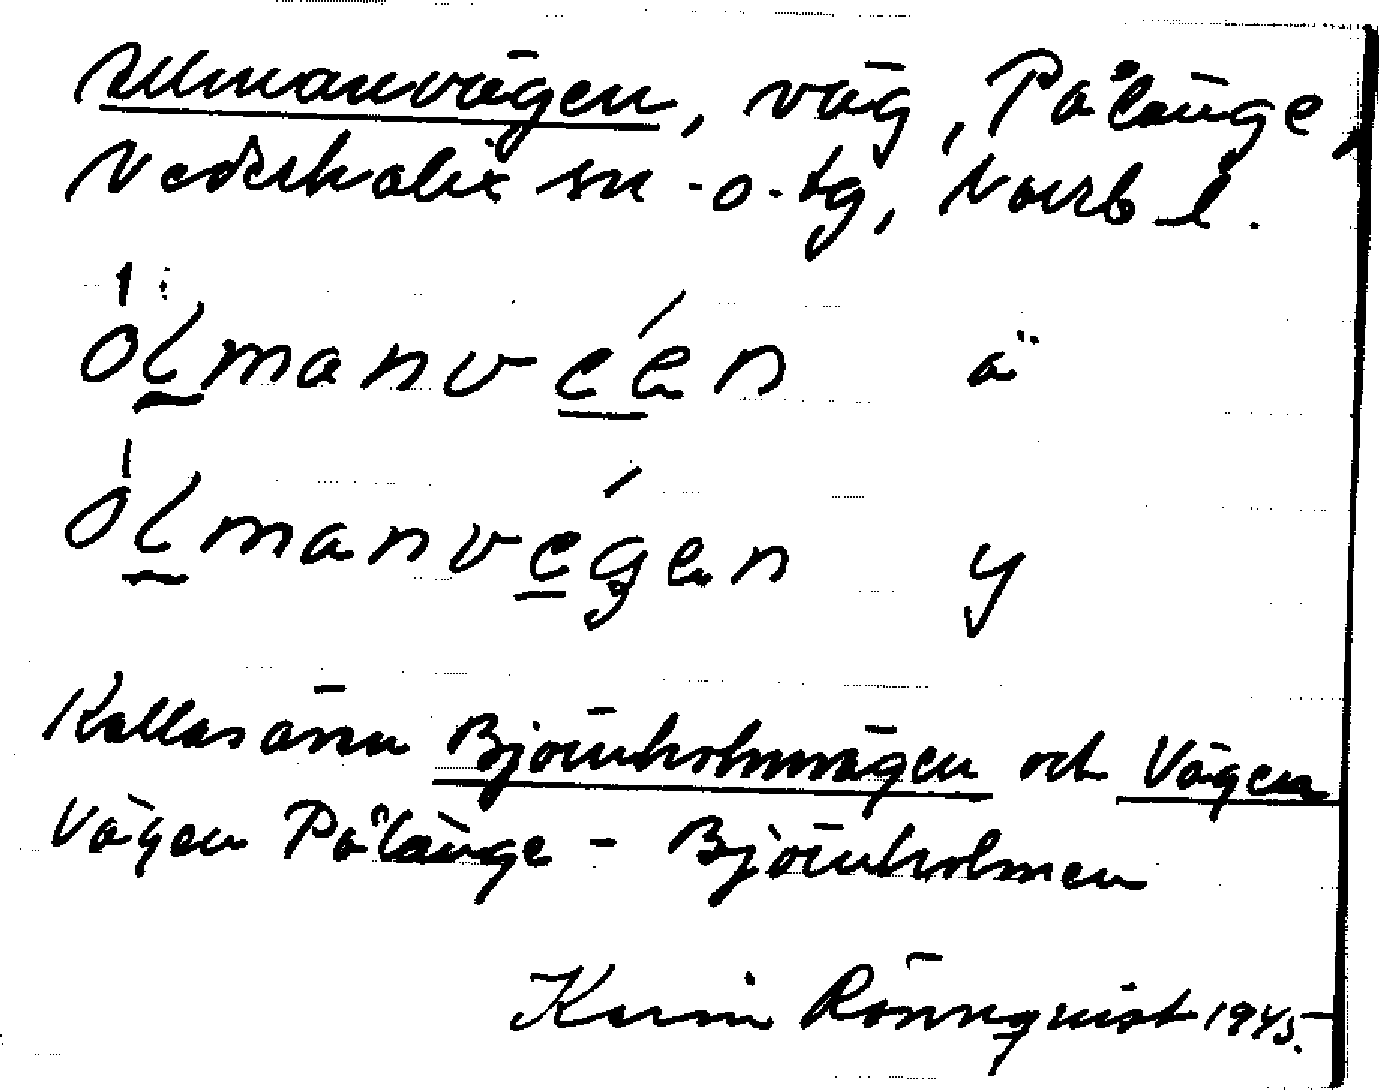 Ulmanvägen, väg, Pålänge,
Nederkalix sn o. tg, Norrb l.
ólmanveén ä
ólmanvégen y
Kallas även Björnholmvägen och Vägen
Vägen Pålänge - Björnholmen
Karin Rönnquist 1945.